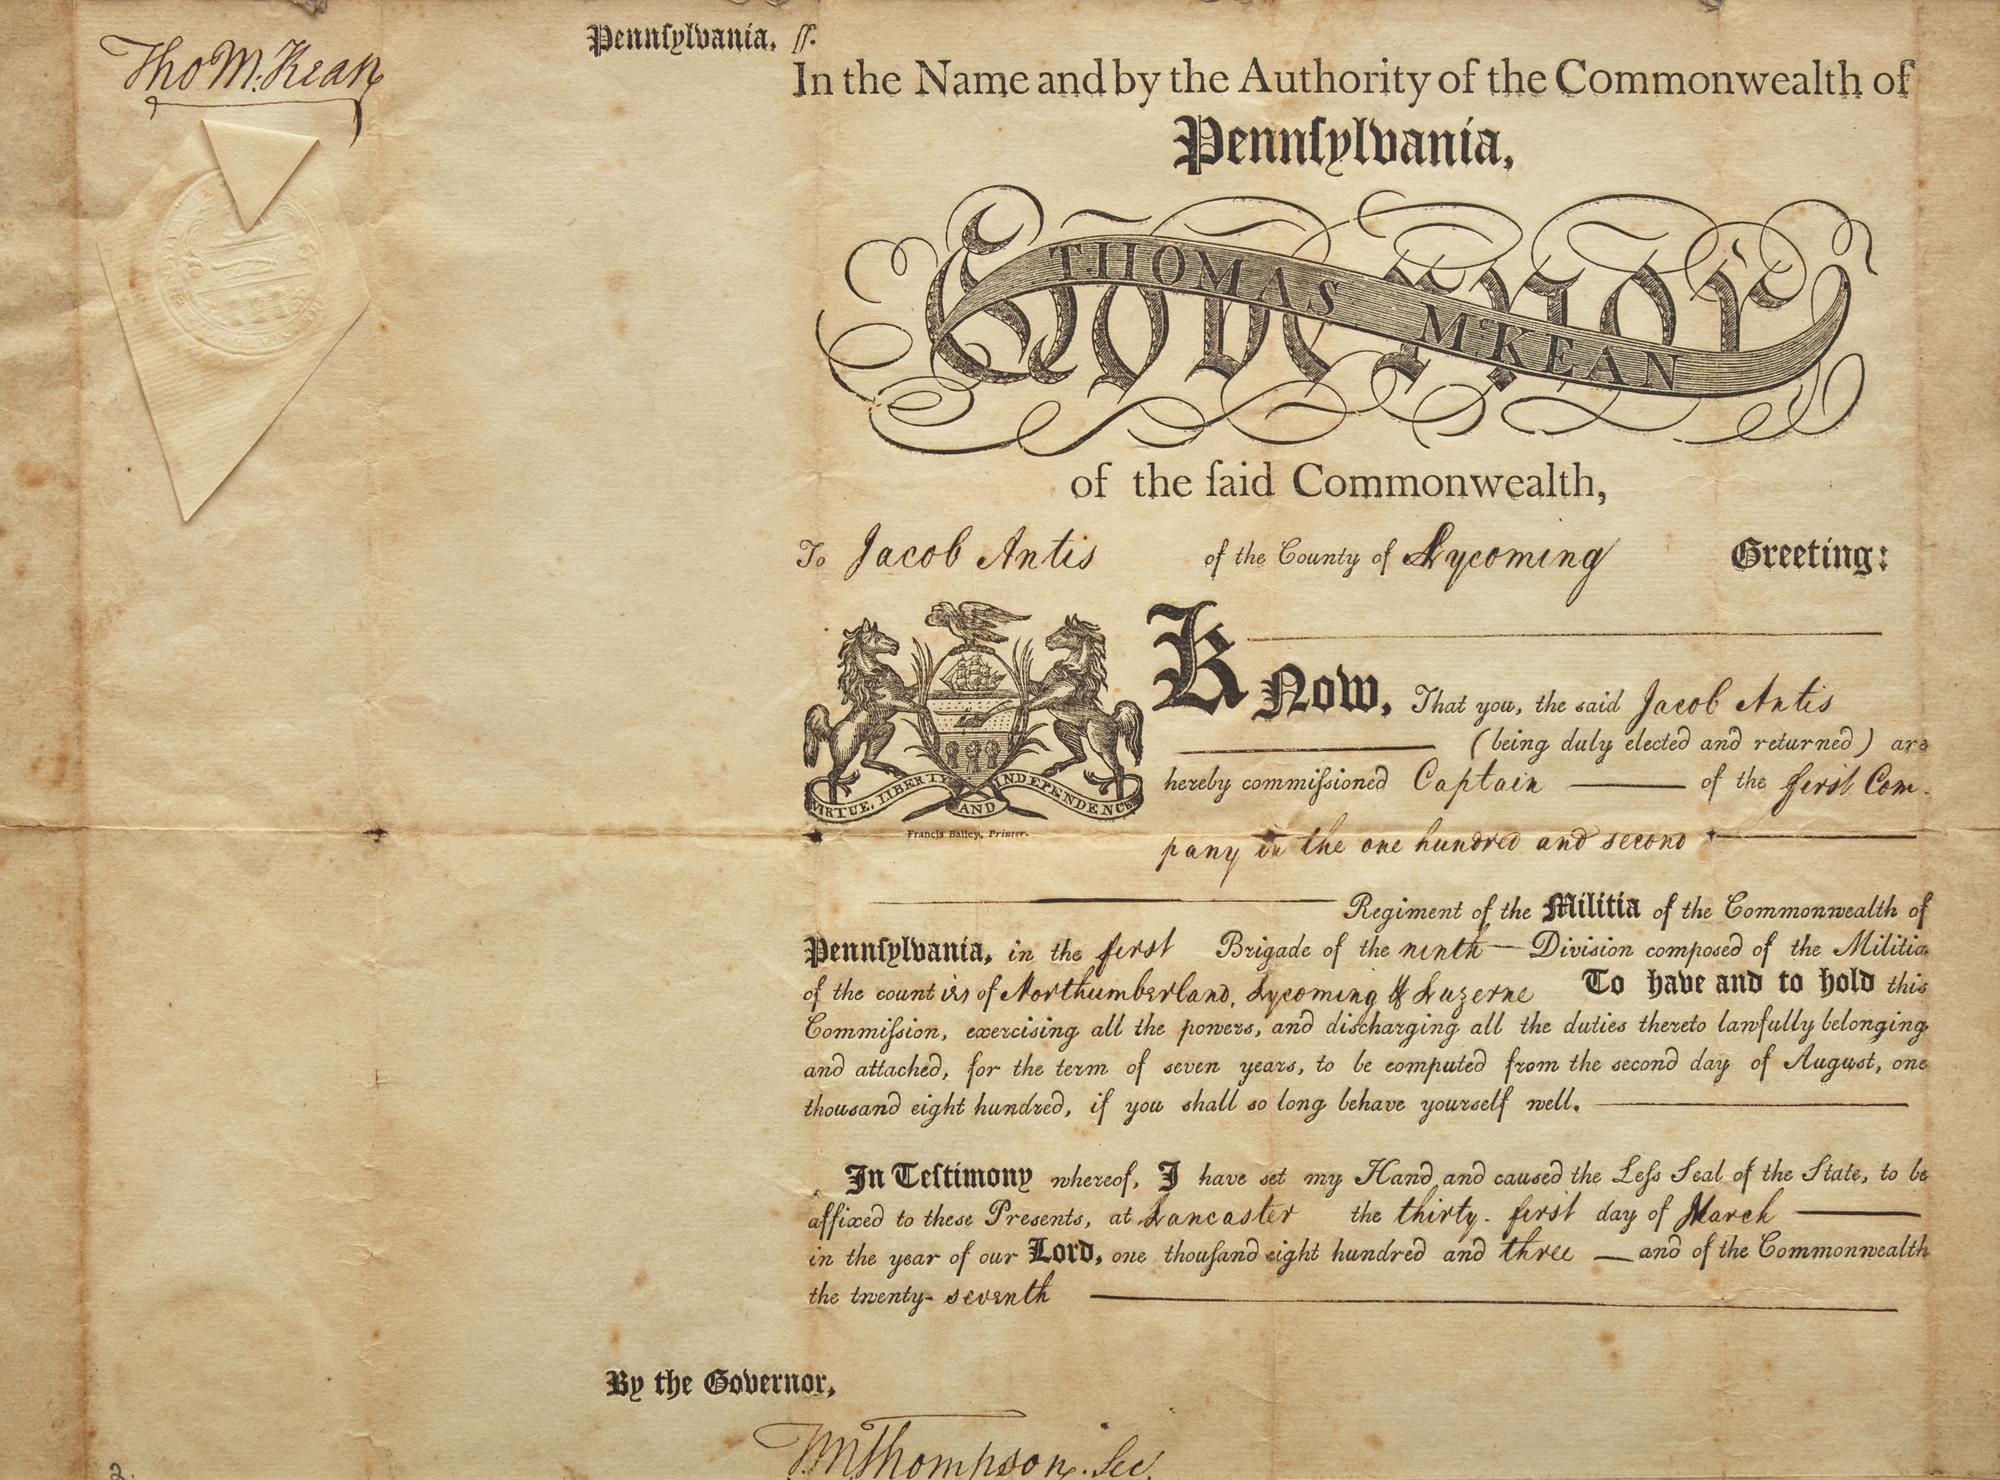 Tho M:Kean
Pennſylvania, ſſ.
In the Name and by the Authority of the Commonwealth of
Pennſylvania,
Governor
THOMAS McKEAN
of the ſaid Commonwealth,
To Jacob Antis of the County of Lycoming Greeting:
Know, That you, the said Jacob Antis
(being duly elected and returned) are
hereby commiſsioned Captain of the first Com-
pany in the one hundred and second
VIRTUE, LIBERTY AND INDEPENDENCE
Francis Bailey, Printer.
Regiment of the Militia of the Commonwealth of
Pennſylvania, in the first Brigade of the ninth Division composed of the Militia
of the counties of Northumberland, Lycoming & Luzerne To have and to hold this
Commiſsion, exercising all the powers, and discharging all the duties thereto lawfully belonging
and attached, for the term of seven years, to be computed from the second day of August, one
thousand eight hundred, if you shall so long behave yourself well.
In Teſtimony whereof, I have set my Hand and caused the Leſs Seal of the State, to be
affixed to these Presents, at Lancaster the thirty-first day of March
in the year of our Lord, one thouſand eight hundred and three and of the Commonwealth
the twenty-seventh
By the Governor,
Thompson. Sec.
2.